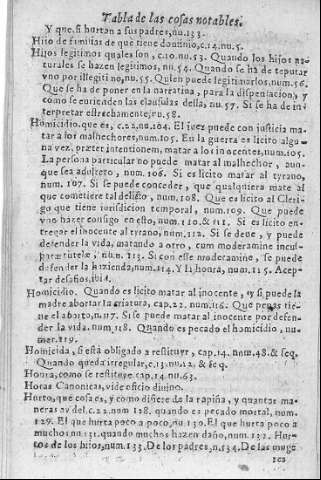 Tabla de las cosas notables.
Y que, si hurtan a sus padres, nu.133.
Hijo de familias de que tiene dominio, c.14.nu.5.
Hijos legitimos quales son, c.10.nu.53. Quando los hijos na-
turales se hazen legitimos, nu.54. Quando se ha de reputar
vno por illegitimo, nu.55. Quien puede legitimarlos, num.56.
Que se ha de poner en la narratiua, para la dispensacion, y
como se entienden las clausulas della, nu.57. Si se ha de in-
terpretar estrechamente, nu.58.
Homicidio. que es, c.22. nu.104. El juez puede con justicia ma-
tar a los malhechores, num.105. En la guerra es licito algu-
na vez, præter intentionem, matar a los inocentes, num.105.
La persona particular no puede matar al malhechor, aun-
que sea adultero, num.106. Si es licito matar al tyrano,
num.107. Si se puede conceder, que qualquiera mate al
que cometiere tal delito, num.108. Que es licito al Cleri-
go que tiene iurisdicion temporal, num.109. Que puede
vno hazer consigo en esto, num.110. & 111. Si es licito en-
tregar el inocente al tyrano, num.112. Si se deue, y puede
defender la vida, matando a otro, cum moderamine incul-
patæ tutelæ, num.113. Si con esse moderamine, se puede
defender la hazienda, num.114. Y la honra, num.115. Acep-
tar desafios, ibi.
Homicidio. Quando es licito matar al inocente, y si puede la
madre abortar la criatura, cap.22. num.116. Que penas tie-
ne el aborto, n.117. Si se puede matar al inocente por defen-
der la vida. num.118. Quando es pecado el homicidio, nu-
mer.119.
Homicida, si está obligado a restituyr, cap.14. num.48. & seq.
Quando queda irregular, c.13. nu.22. & seq.
Honra, como se restituye. cap.14. nu.63.
Horas Canonicas, vide oficio diuino.
Hurto, que cosa es, y como difiere de la rapiña, y quantas ma-
neras ay del. c.22. num.128. quando es pecado mortal, num.
129. El que hurta poco a poco, nu.130. El que hurta poco a
muchos, nu.131. quando muchos hazen daño, num.132. Hur-
tos de los hijos, num.133. De los padres, n.134. De las muge
res